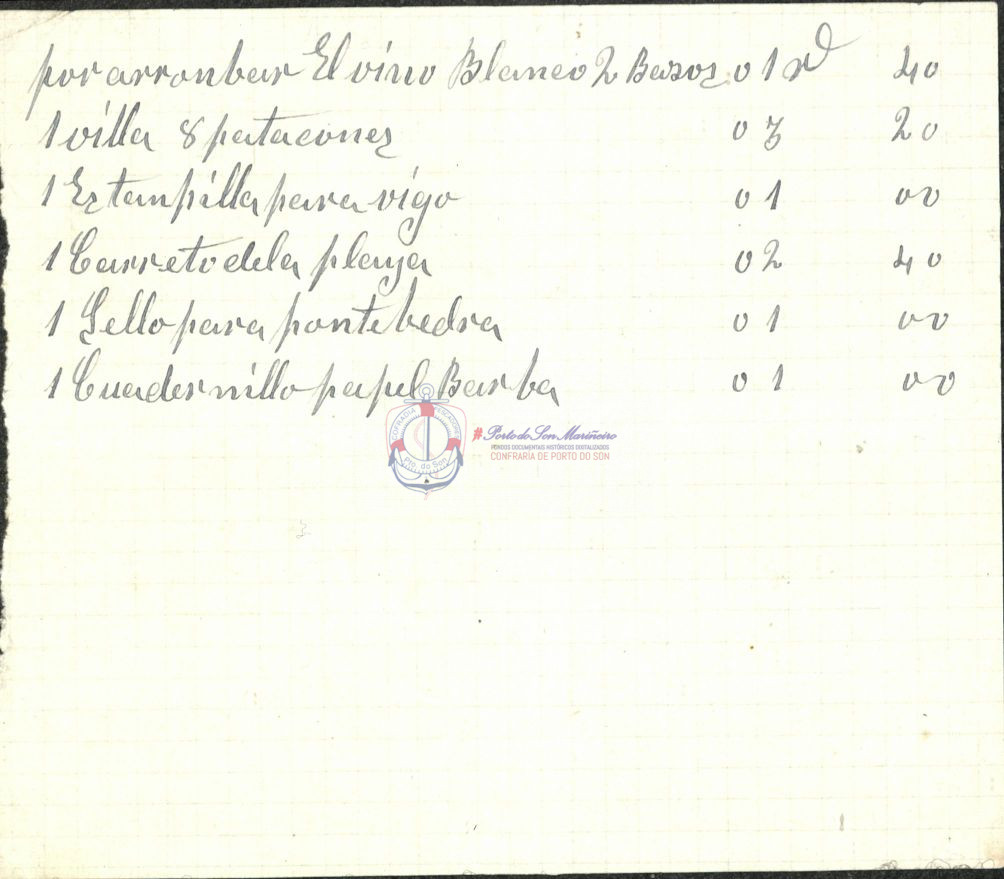 por arronbar El vino Blanco 2 Basos 01 rl 40
1 villa 8 patacones 03 20
1 Estanpilla para vigo 01 00
1 Carreto dela playa 02 40
1 Sello para pontebedra 01 00
1 Cuadernillo papel Barba 01 00
COFRADIA PESCADORES
Pto. do Son
#Porto do Son Mariñeiro
FONDOS DOCUMENTAIS HISTÓRICOS DIXITALIZADOS
CONFRARÍA DE PORTO DO SON